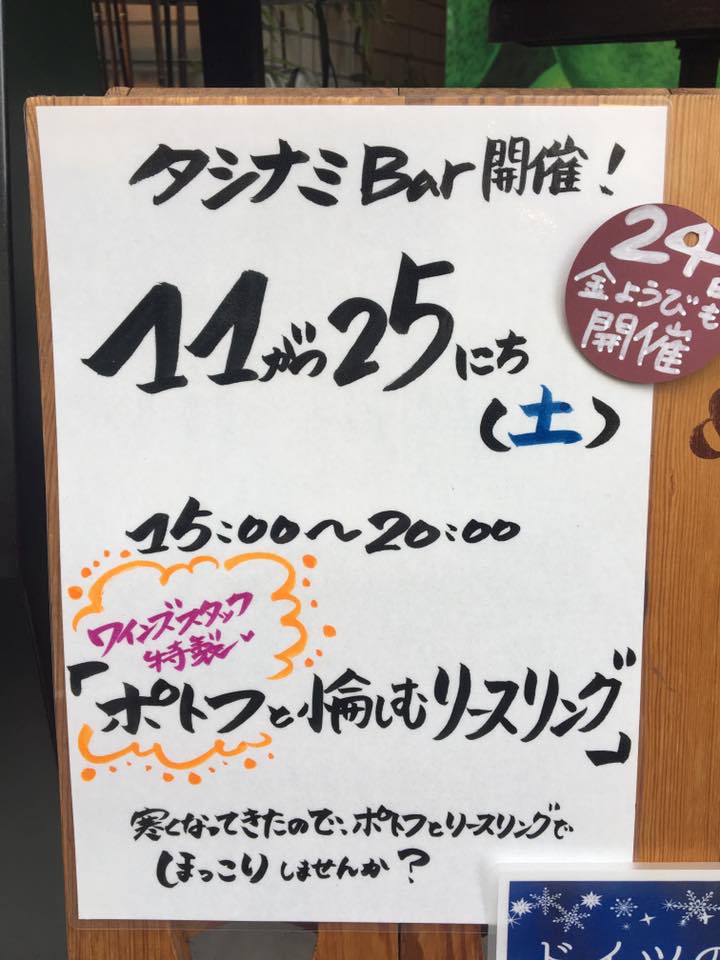 タシナミBar開催!
11がつ25にち
(土)
24日
金ようびも
開催
15:00〜20:00
ワインズスタッフ
特製
「ポトフと愉しむリースリング」
寒くなってきたので、ポトフとリースリングで
ほっこりしませんか?
ドイツの